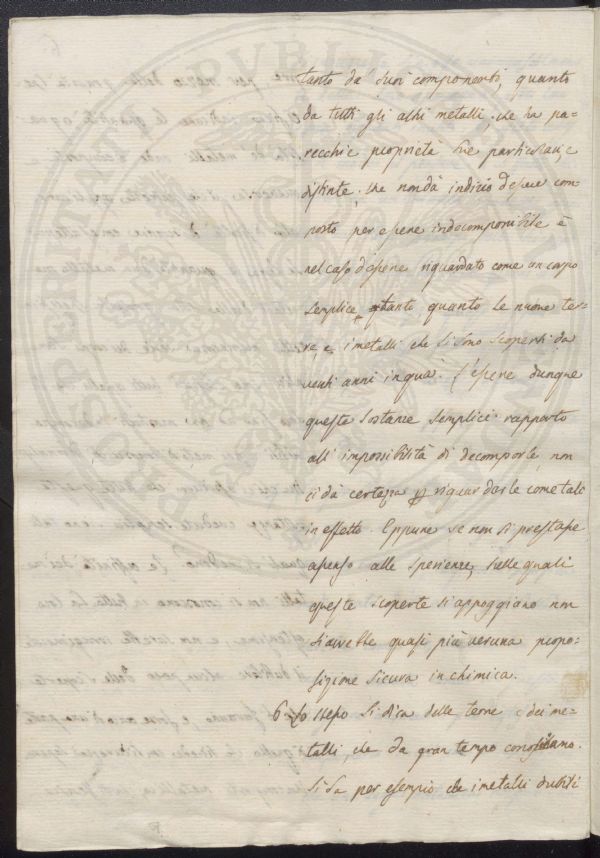 tanto da' suoi componenti, quanto
da tutti gli altri metalli, che ha pa=
recchie proprietà sue particolari, e
distinte, che non dà indizio d'essere com=
posto per essere indecomponibile è
nel caso d'essere riguardato come un corpo
semplice, tanto quanto le nuove ter=
re, e i metalli che si sono scoperti da
venti anni in quà. L'essere dunque
queste sostanze semplici rapporto
all'impossibilità di decomporle, non
ci dà certezza per riguardarle come tali
in effetto. Eppure se non si prestasse
assenso alle sperienze, sulle quali
queste scoperte si appoggiano non
si avrebbe quasi più veruna propo=
sizione sicura in chimica.
6 Lo stesso si dica delle terre e dei me=
talli, che da gran tempo conosciamo.
Si sa per esempio che i metalli duttili